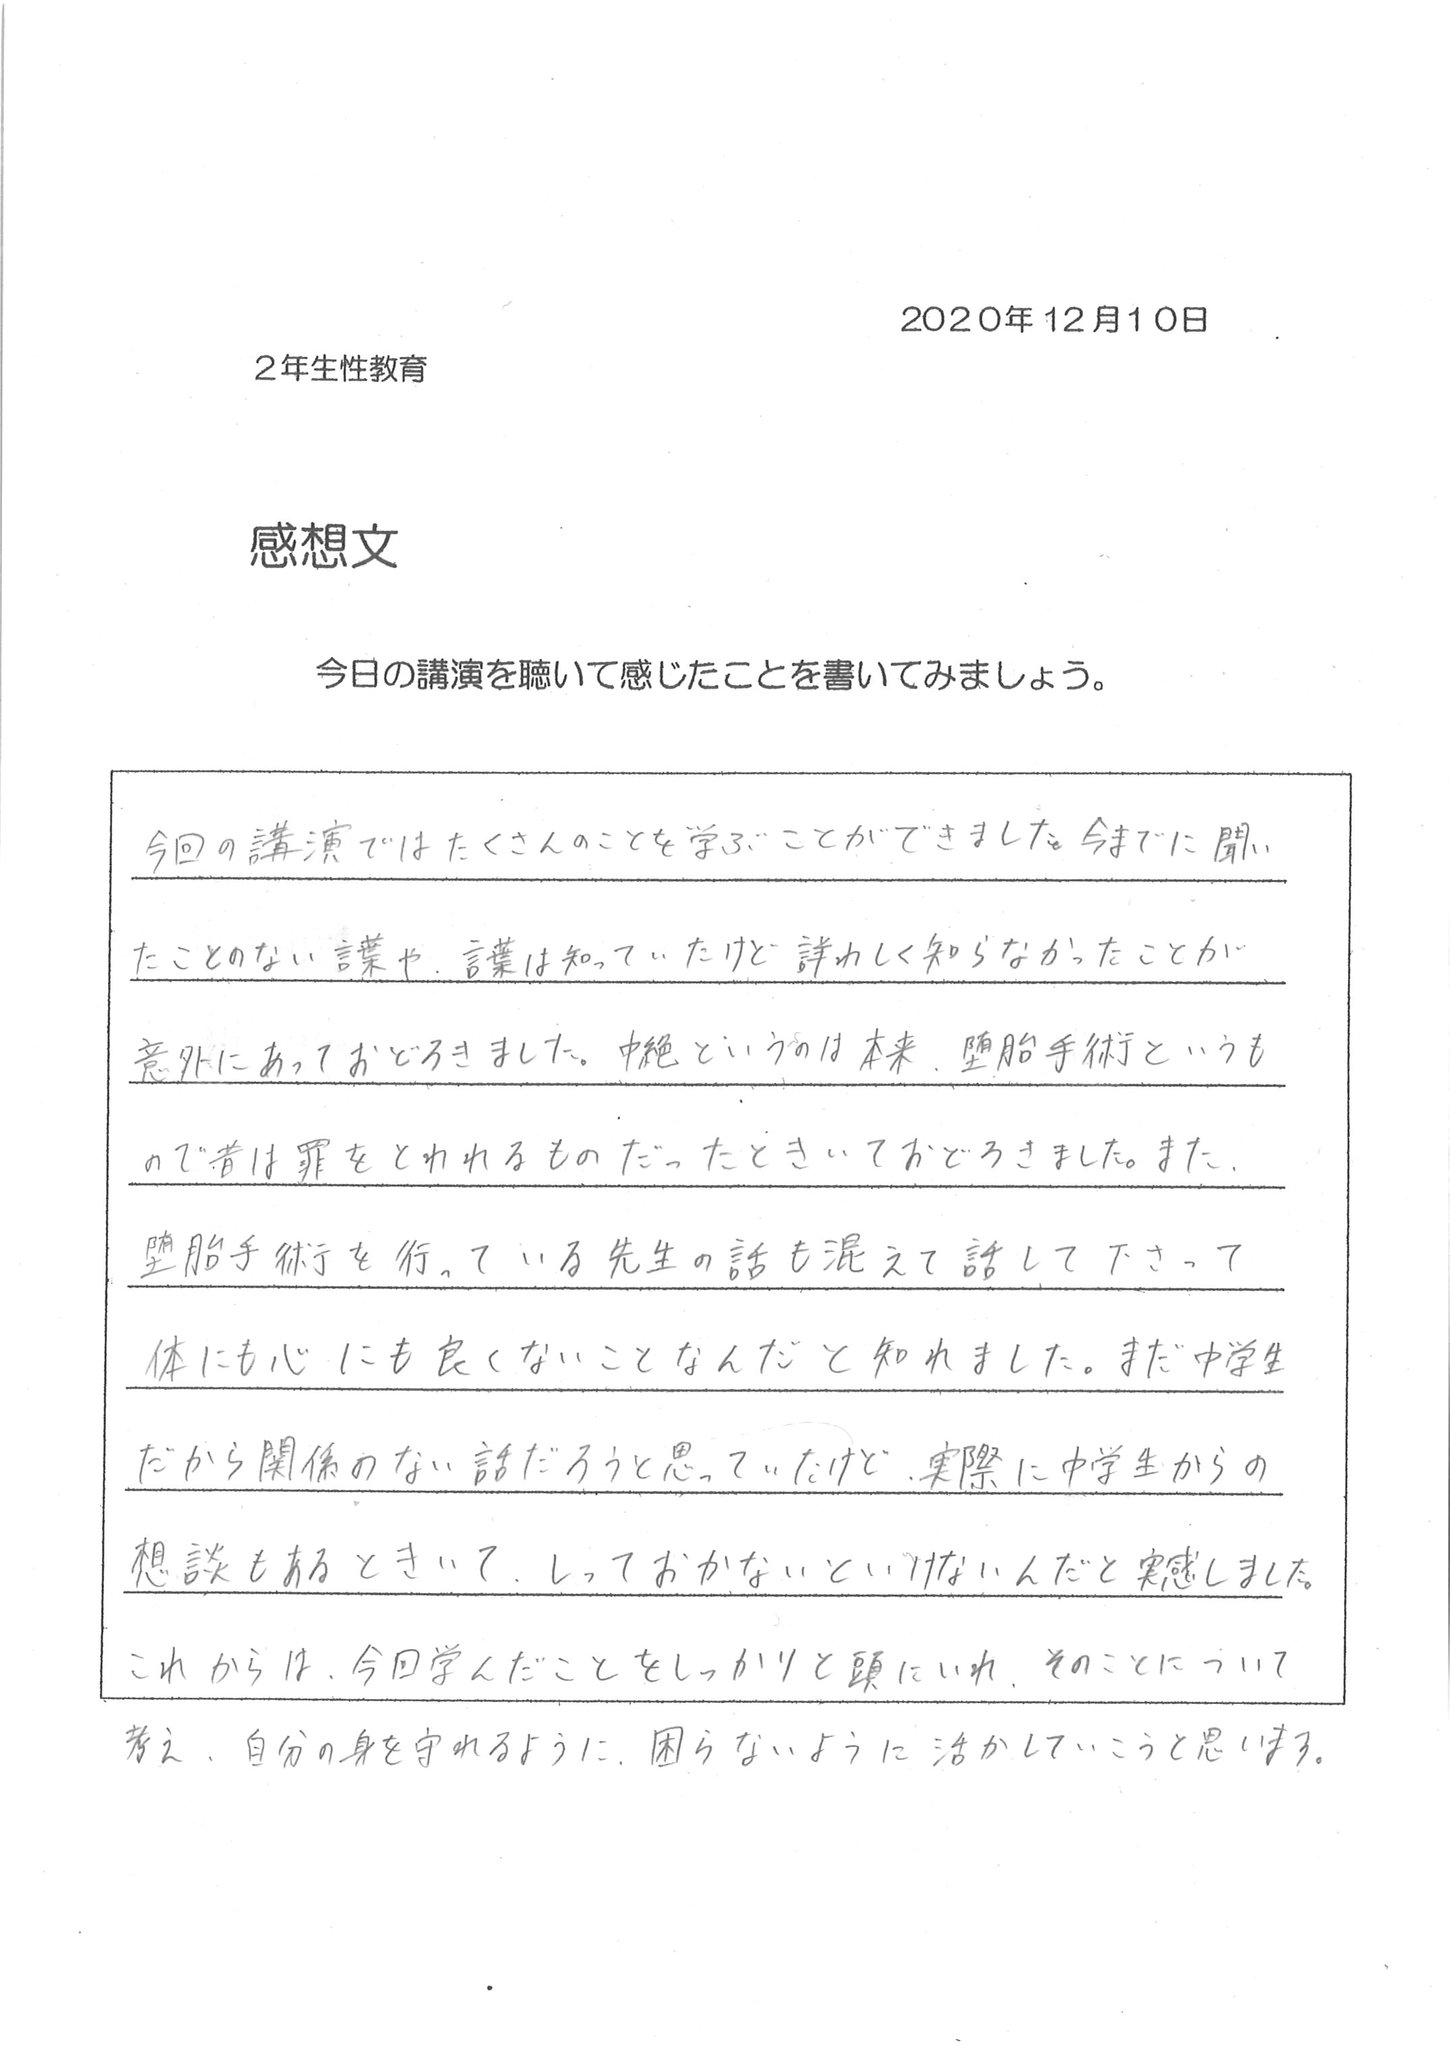 2020年12月10日
2年生性教育
感想文
今日の講演を聴いて感じたことを書いてみましょう。
今回の講演ではたくさんのことを学ぶことができました。今までに聞い
たことのない言葉や、言葉は知っていたけど詳れしく知らなかったことが
意外にあっておどろきました。中絶というのは本来、堕胎手術というも
ので昔は罪をとわれるものだったときいておどろきました。また、
堕胎手術を行っている先生の話も混えて話して下さって
体にも心にも良くないことなんだと知れました。まだ中学生
だから関係のない話だろうと思っていたけど、実際に中学生からの
想談もあるときいて、しっておかないといけないんだと実感しました。
これからは、今回学んだことをしっかりと頭にいれ、そのことについて
考え、自分の身を守れるように、困らないように活かしていこうと思います。